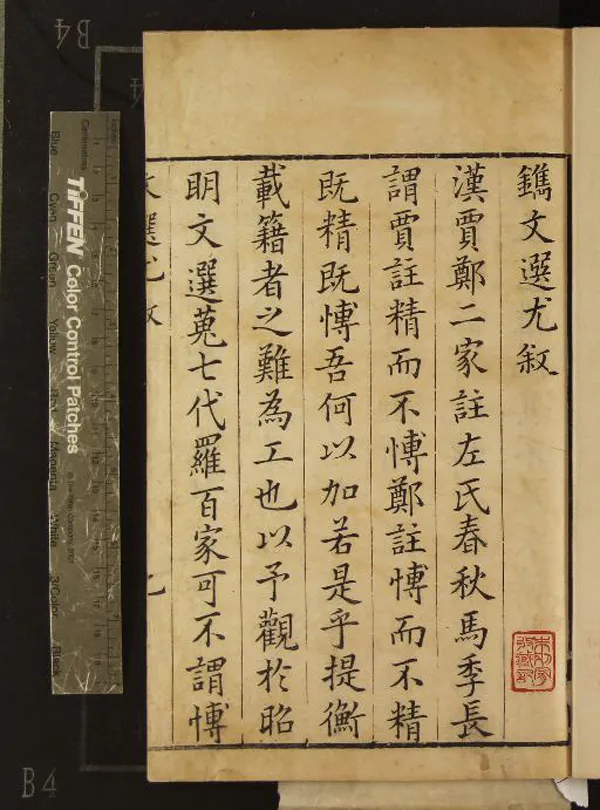 鐫文選尤敘
漢賈鄭二家註左氏春秋馬季長
謂賈註精而不愽鄭註愽而不精
既精既愽吾何以加若是乎提衡
載籍者之難為工也以予觀於昭
明文選蒐七代羅百家可不謂愽
TIFFEN Color Control Patches
Blue
Cyan
Green
Yellow
Red
Magenta
White
3/Color
Black
B4
B4